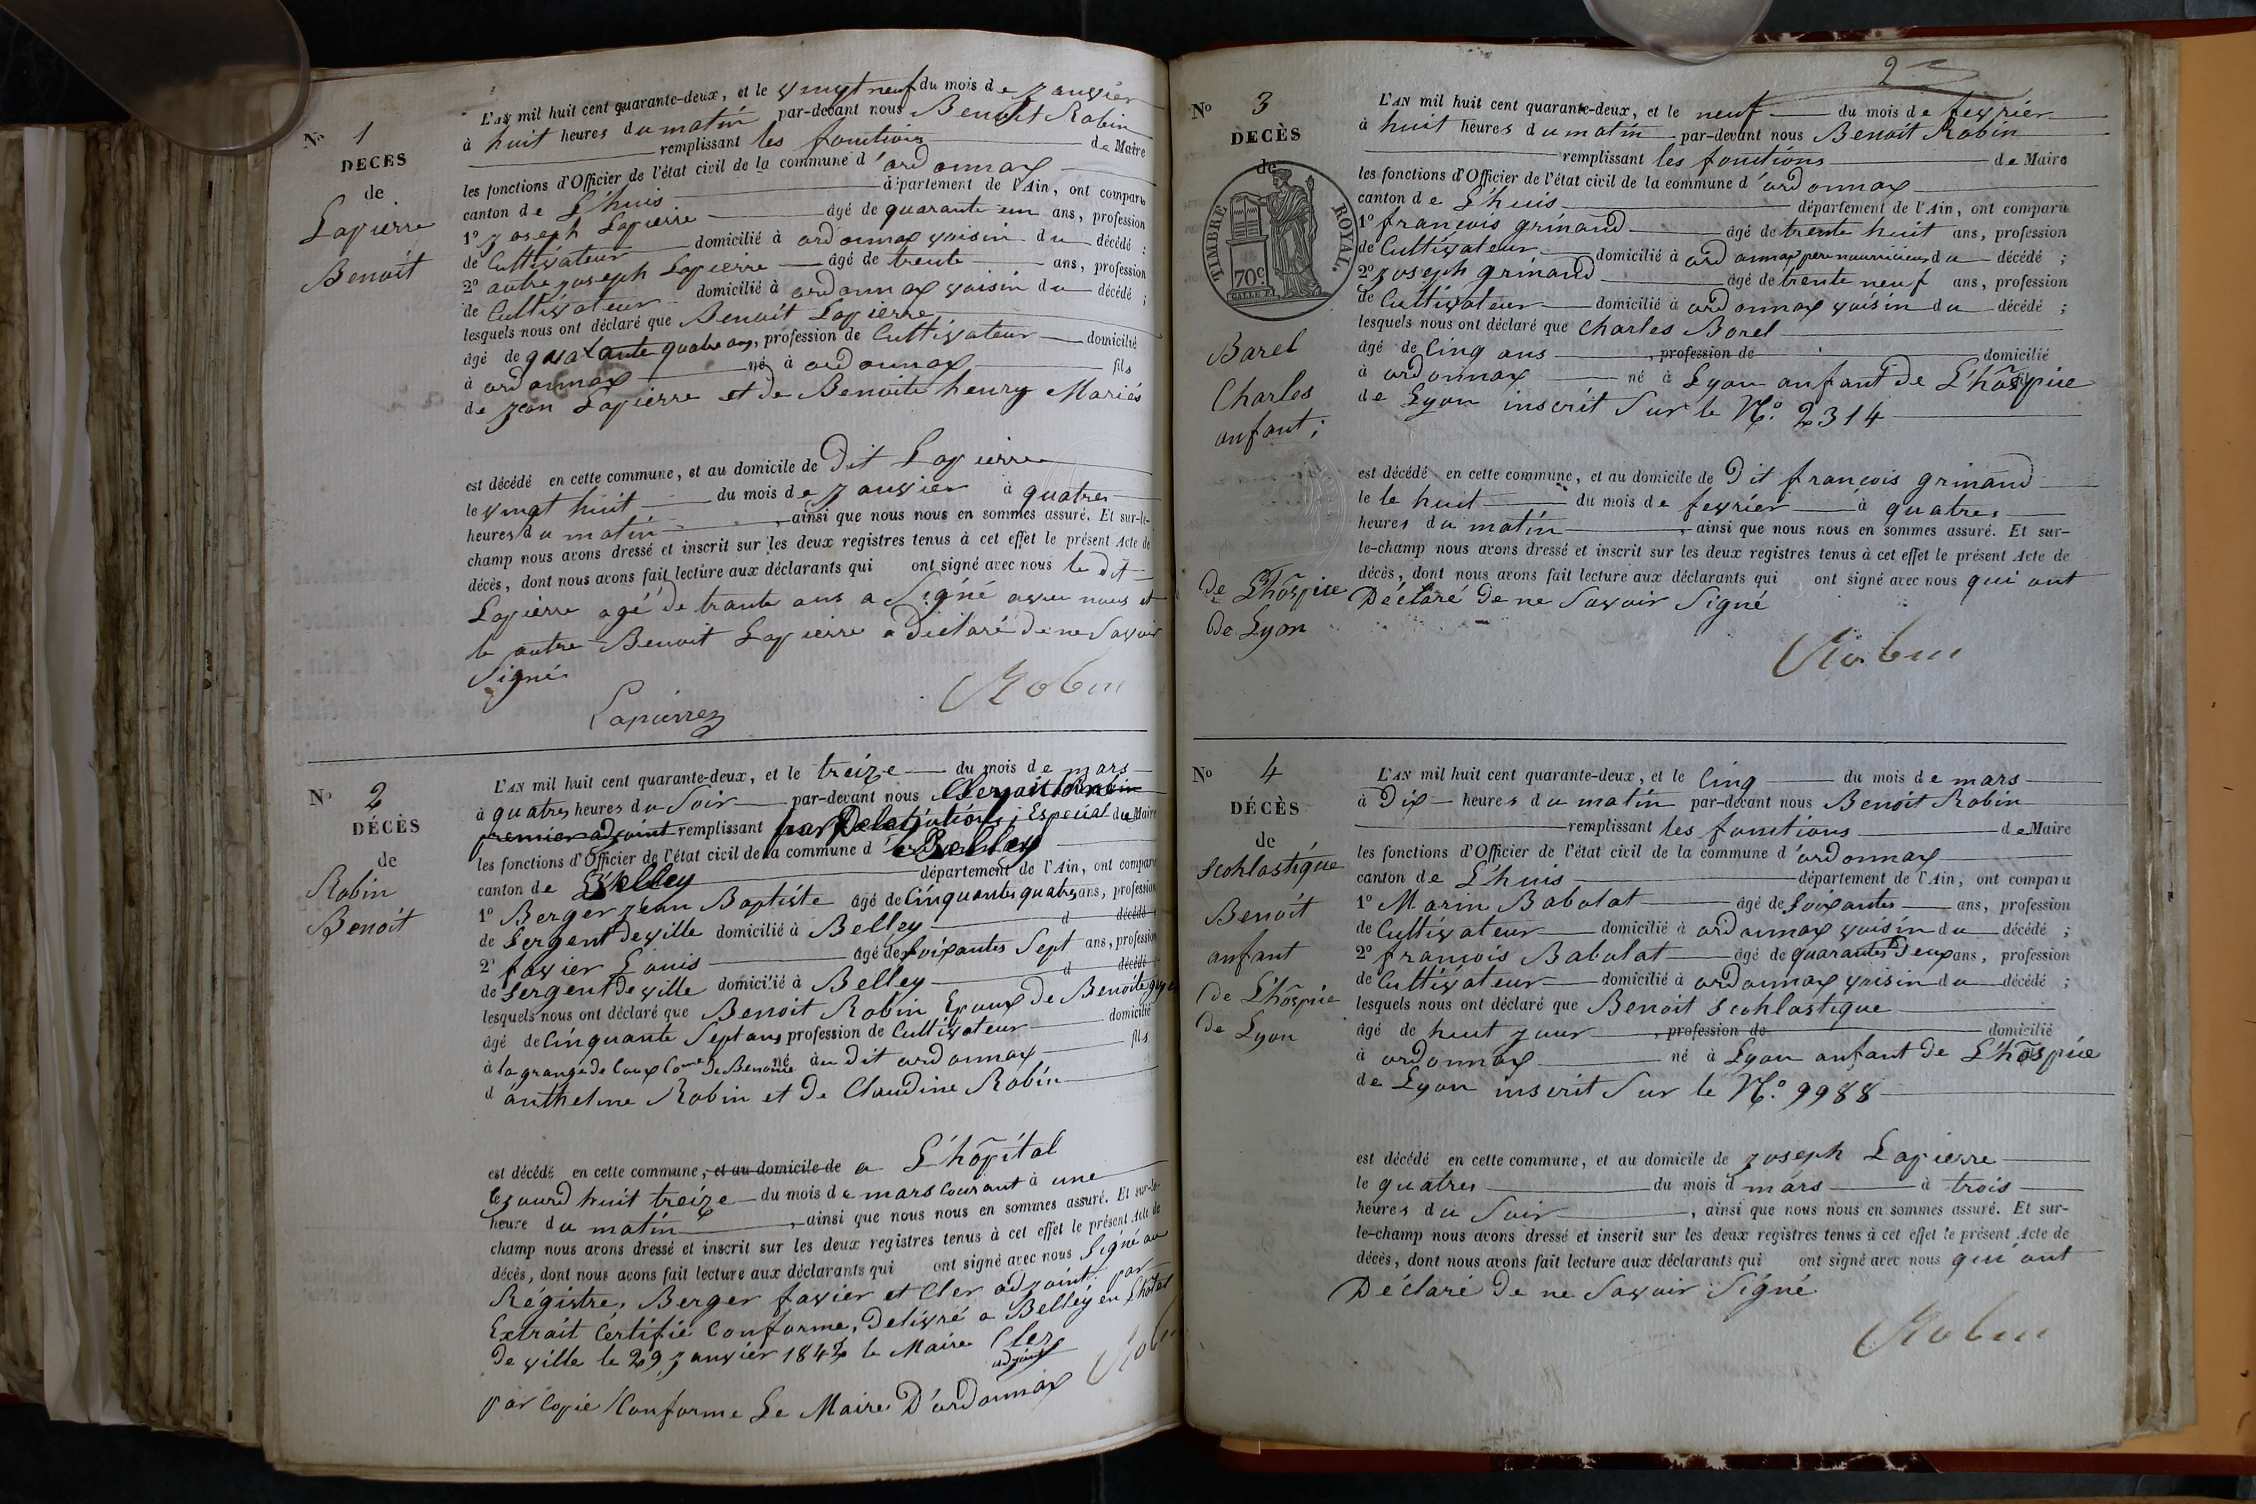 N° 1
DECÈS
de
Lapierre
Benoit
L'AN mil huit cent quarante-deux, et le vingt neuf du mois de janvier
à huit heures du matin par-devant nous Benoit Robin
remplissant les fonctions de Maire
les fonctions d'Officier de l'état civil de la commune d'ordonnax
canton de L'huis département de l'Ain, ont comparu
1° joseph Lapierre âgé de quarante un ans, profession
de Cultivateur domicilié à ordonnax voisin du décédé ;
2° autre joseph Lapierre âgé de trente ans, profession
de Cultivateur domicilié à ordonnax voisin du décédé ;
lesquels nous ont déclaré que Benoit Lapierre
âgé de quatante quatre ans, profession de Cultivateur domicilié
à ordonnax né à ordonnax fils
de jean Lapierre et de Benoite henry Mariés
est décédé en cette commune, et au domicile de Dit Lapierre
le vingt huit du mois de janvier à quatres
heures du matin, ainsi que nous nous en sommes assuré. Et sur-le-
champ nous avons dressé et inscrit sur les deux registres tenus à cet effet le présent Acte de
décès, dont nous avons fait lecture aux déclarants qui ont signé avec nous le dit
Lapierre agé de trante ans a Signé avec nous et
le autre Benoit Lapierre a declaré de ne Savoir
Signé
Lapierre
Robin
N° 2
DÉCÈS
de
Robin
Benoit
L'AN mil huit cent quarante-deux, et le treize du mois de mars
à quatres heures du Soir par-devant nous
premier adjoint remplissant par Delegations Especial du Maire
les fonctions d'Officier de l'état civil de la commune d Belley
canton de Belley département de l'Ain, ont comparu
1° Berger jean Baptiste âgé de Cinquantes quatres ans, profession
de Sergent de ville domicilié à Belley d décédé ;
2° favier Louis âgé de Soixantes Sept ans, profession
de Sergent de ville domicilié à Belley d décédé
lesquels nous ont déclaré que Benoit Robin Epoux de Benoite
âgé de Cinquante Sept ans profession de Cultivateur domicilié
à la grange de Caux Cone De Benonce né au dit ordonnax fils
d'anthelme Robin et de Claudine Robin
est décédé en cette commune, et au domicile de a L'hôpital
le jourd huit treize du mois de mars Courant à une
heure du matin, ainsi que nous nous en sommes assuré. Et sur-le-
champ nous avons dressé et inscrit sur les deux registres tenus à cet effet le présent Acte de
décès, dont nous avons fait lecture aux déclarants qui ont signé avec nous Signé au
Régistre, Berger favier et Cler adjoint, par
Extrait Certifié Conforme, Delivré a Belley en L'hotel
de ville le 29 janvier 1842 le Maire Cler
adjoint
par Copie Conforme Le Maire D'ordonnax
Robin
2
N° 3
DECÈS
de
TIMBRE ROYAL.
70c.
Barel
Charles
anfant ;
de L'hôspice
de Lyon
L'AN mil huit cent quarante-deux, et le neuf du mois de fevrier
à huit heures du matin par-devant nous Benoit Robin
remplissant les fonctions de Maire
les fonctions d'Officier de l'état civil de la commune d'ordonnax
canton de L'huis département de l'Ain, ont comparu
1° françois grinand âgé de trente huit ans, profession
de Cultivateur domicilié à ordonnax pere nourricieu du décédé ;
2° joseph grinand âgé de trente neuf ans, profession
de Cultivateur domicilié à ordonnax voisin du décédé ;
lesquels nous ont déclaré que Charles Borel
âgé de Cinq ans, profession de domicilié
à ordonnax né à Lyon anfant de L'hôspice
de Lyon inscrit Sur le N° 2314
est décédé en cette commune, et au domicile de Dit françois grinand
le le huit du mois de fevrier à quatres
heures du matin, ainsi que nous nous en sommes assuré. Et sur-
le-champ nous avons dressé et inscrit sur les deux registres tenus à cet effet le présent Acte de
décès, dont nous avons fait lecture aux déclarants qui ont signé avec nous qui ont
Déclaré de ne Savoir Signé
Robin
N° 4
DÉCÈS
de
Scohlastique
Benoit
anfant
de L'hôspice
de Lyon
L'AN mil huit cent quarante-deux, et le Cinq du mois de mars
à Dix heures du matin par-devant nous Benoit Robin
remplissant les fonctions de Maire
les fonctions d'Officier de l'état civil de la commune d'ordonnax
canton de L'huis département de l'Ain, ont comparu
1° Marin Babolat âgé de Soixantes ans, profession
de Cultivateur domicilié à ordonnax voisin du décédé ;
2° françois Babolat âgé de quarantes Deux ans, profession
de Cultivateur domicilié à ordonnax voisin du décédé ;
lesquels nous ont déclaré que Benoit Scohlastique
âgé de huit jour, profession de domicilié
à ordonnax né à Lyon anfant de L'hôspice
de Lyon inscrit Sur le N° 9988
est décédé en cette commune, et au domicile de joseph Lapierre
le quatres du mois d mars à trois
heures du Soir, ainsi que nous nous en sommes assuré. Et sur-
le-champ nous avons dressé et inscrit sur les deux registres tenus à cet effet le présent Acte de
décès, dont nous avons fait lecture aux déclarants qui ont signé avec nous qui ont
Déclaré de ne Savoir Signé
Robin